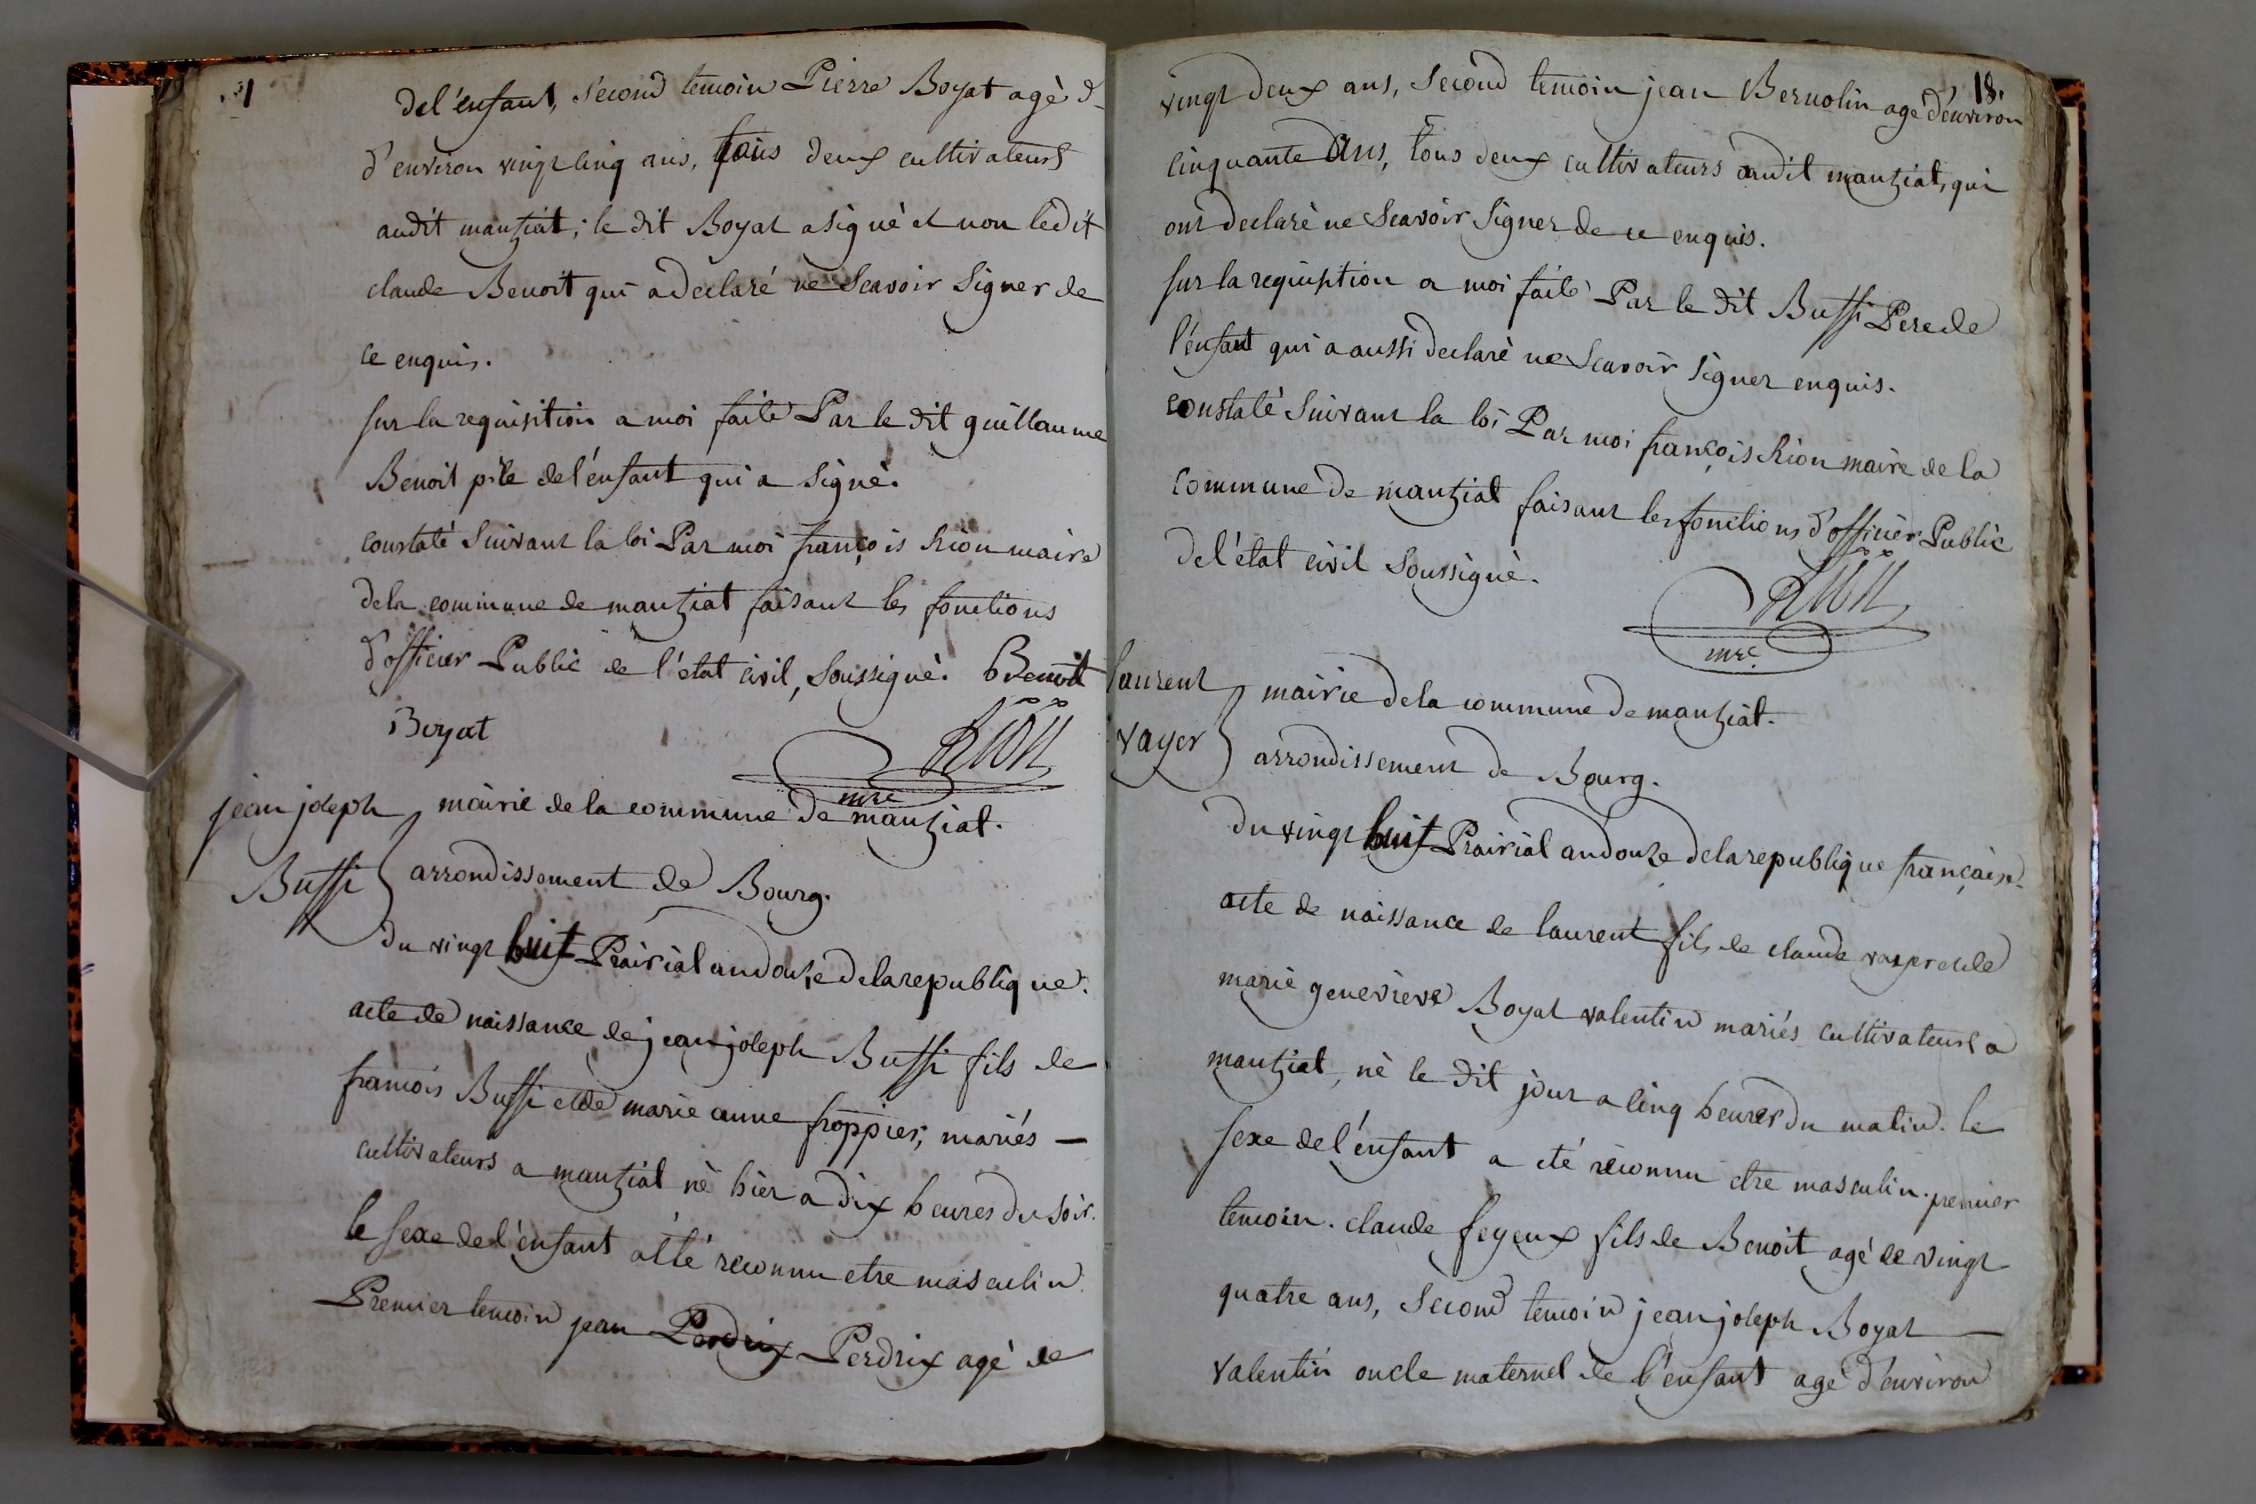 del'enfant, second temoin Pierre Boyat agè d-
d'environ vingt cinq ans, tous deux cultivateurs
audit mantziat; le dit Boyat a signè et non ledit
claude Benoit qui a declaré ne Scavoir Signer de
ce enquis.
sur la requisition a moi faite Par le dit guillaume
Benoit pere de l'enfant qui a signè.
constaté Suivant la loi Par moi françois Rion maire
de la commune de mantziat faisant les fonctions
d'officier Public de l'état civil, Soussignè. Benoit
Boyat
Rion
mre
jean joseph
Buffi
mairie de la commune de mantziat.
arrondissement de Bourg.
du vingt huit Prairial an douze de la republique.
acte de naissance de jean joseph Buffi fils de
francois Buffi et de marie anne froppier, mariés —
cultivateurs a mantziat nè hier a dix heures du soir.
le sexe de l'enfant a été reconnu etre masculin.
Premier temoin jean Perdrix Perdrix agè de
18.
vingt deux ans, Second temoin jean Bernolin agé d'environ
cinquante ans, tous deux cultivateurs audit mantziat, qui
ont declarè ne Scavoir Signer de ce enquis.
sur la requisition a moi faite Par le dit Buffi Pere de
l'enfant qui a aussi declarè ne Scavoir signer enquis.
constatè Suivant la loi Par moi françois Rion maire de la
commune de mantziat faisant les fonctions d'officier Public
de l'état civil Soussignè.
Rion
mre
laurent
vayer
mairie de la commune de mantziat.
arrondissement de Bourg.
du vingt huit Prairial an douze de la republique française.
acte de naissance de laurent fils de claude vayer et de
marie genevieve Boyat valentin mariés cultivateurs a
mantziat, nè le dit jour a cinq heures du matin. le
sexe de l'enfant a eté reconnu etre masculin. premier
temoin. claude feyeux fils de Benoit agé de vingt
quatre ans, Second temoin jean joseph Boyat —
valentin oncle maternel de l'enfant agé d'environ